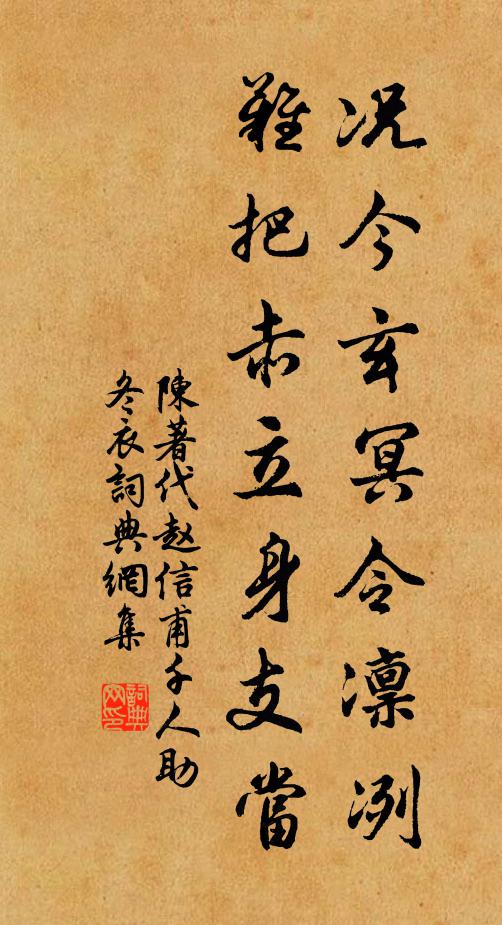 况今玄冥令凛冽
難把赤立身支當
陳著代赵信甫千人助
冬衣詞典網集
詞典网印